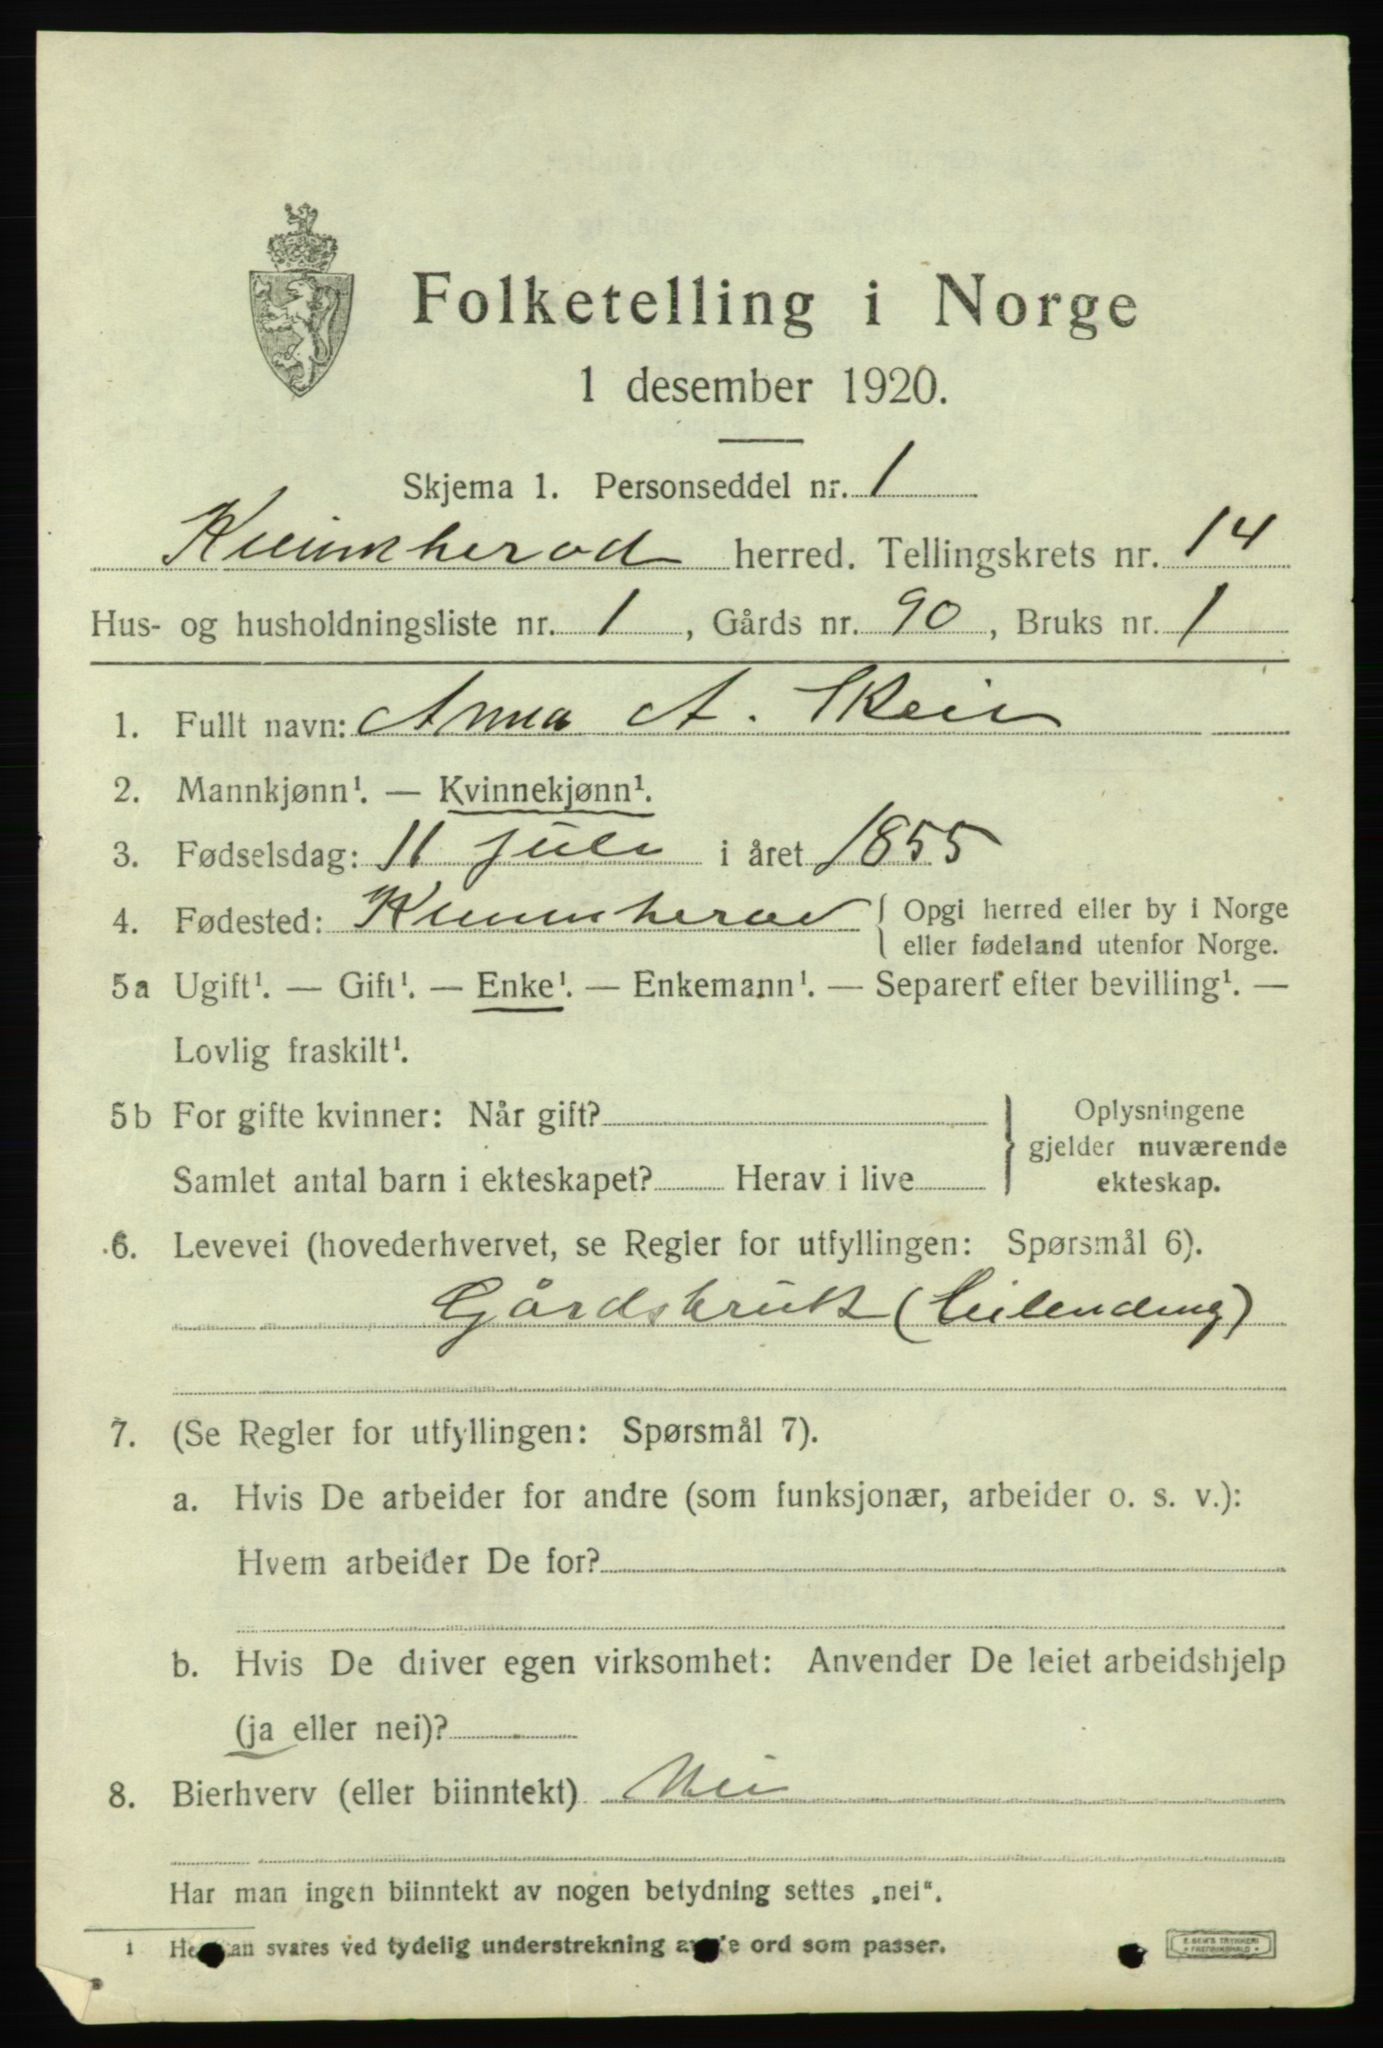 Folketelling i Norge
1 desember 1920.
Skjema 1. Personseddel nr. 1
Kvinnherad herred. Tellingskrets nr. 14
Hus- og husholdningsliste nr. 1, Gårds nr. 90, Bruks nr. 1
1. Fullt navn: Anna A. Skeie
2. Mannkjønn¹. — Kvinnekjønn¹.
3. Fødselsdag: 11 juli i året 1855
4. Fødested: Kvinnherad { Opgi herred eller by i Norge
eller fødeland utenfor Norge.
5a Ugift¹. — Gift¹. — Enke¹. — Enkemann¹. — Separert efter bevilling¹. —
Lovlig fraskilt¹.
5b For gifte kvinner: Når gift?
Samlet antal barn i ekteskapet? Herav i live
} Oplysningene
gjelder nuværende
ekteskap.
6. Levevei (hovederhvervet, se Regler for utfyllingen: Spørsmål 6).
Gårdsbruk (Leilending)
7. (Se Regler for utfyllingen: Spørsmål 7).
a. Hvis De arbeider for andre (som funksjonær, arbeider o. s. v.):
Hvem arbeider De for?
b. Hvis De driver egen virksomhet: Anvender De leiet arbeidshjelp
(ja eller nei)?
8. Bierhverv (eller biinntekt) Nei
Har man ingen biinntekt av nogen betydning settes „nei“.
1 svares ved tydelig understrekning ord som passer.